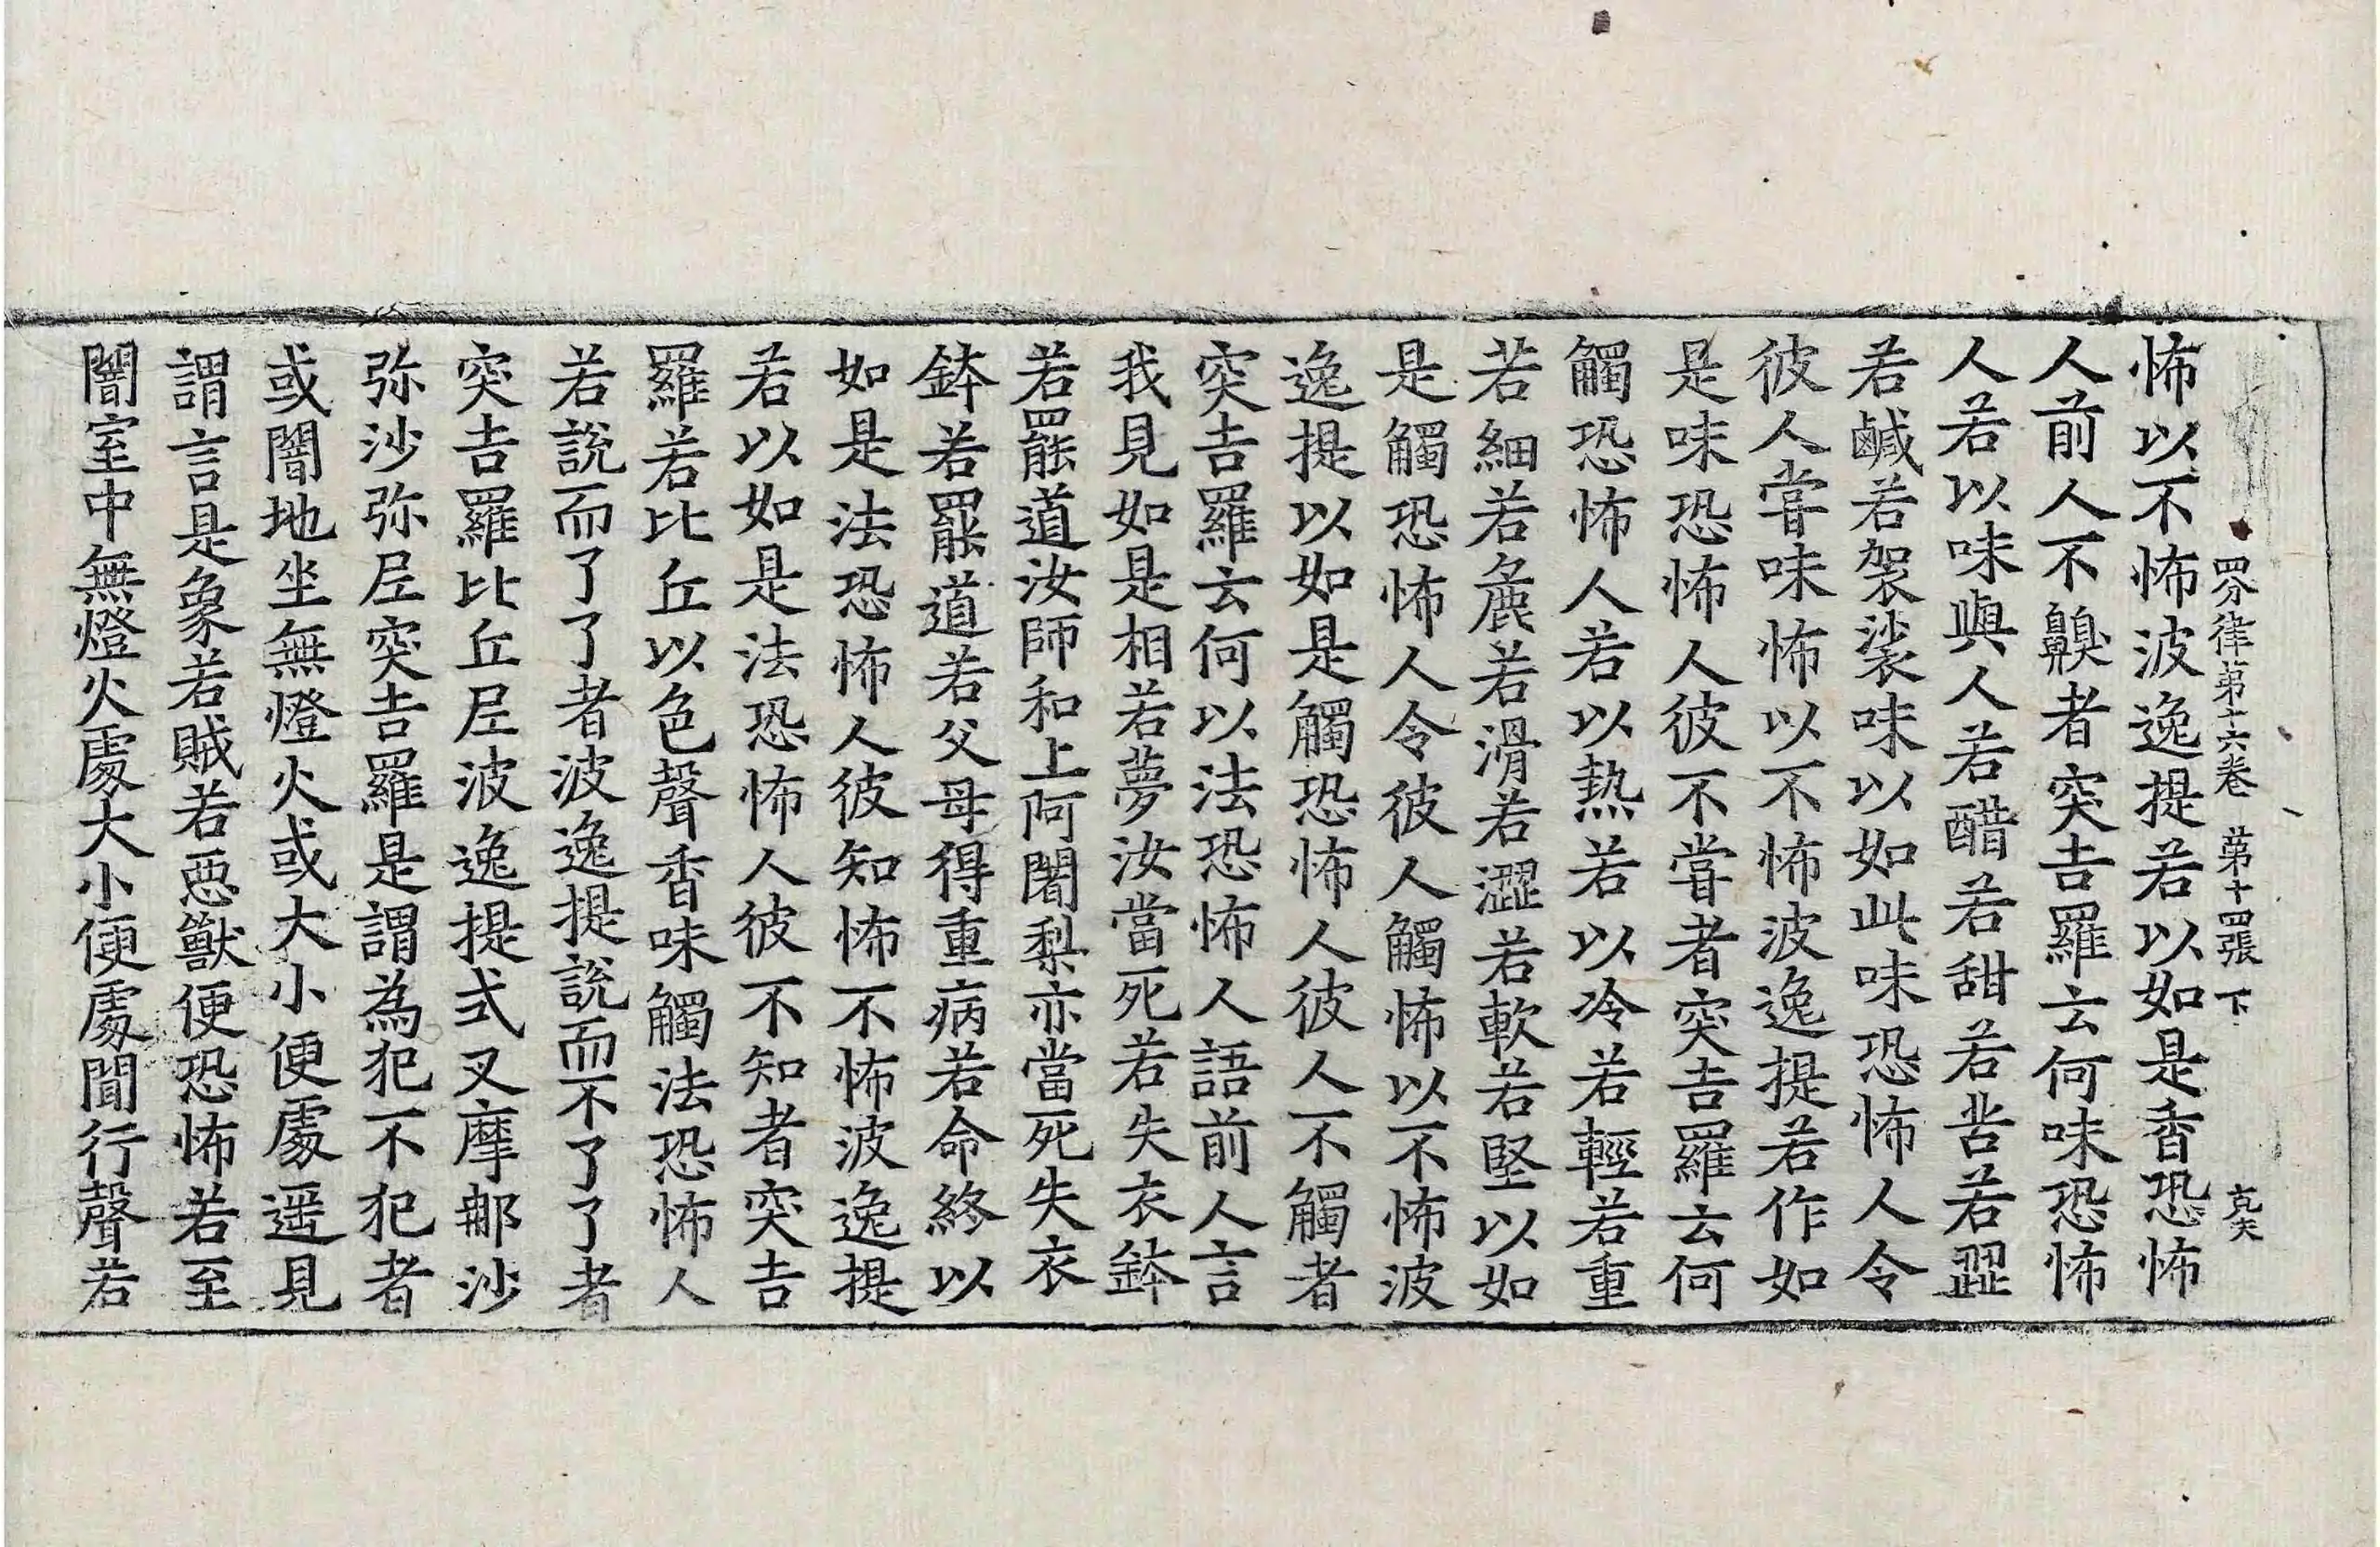 四分律第十六卷 第十四張 下 克夫
怖以不怖波逸提若以如是香恐怖
人前人不齅者突吉羅云何味恐怖
人若以味與人若醋若甜若苦若澀
若鹹若袈裟味以如此味恐怖人令
彼人甞味怖以不怖波逸提若作如
是味恐怖人彼不甞者突吉羅云何
觸恐怖人若以熱若以冷若輕若重
若細若麁若滑若澀若軟若堅以如
是觸恐怖人令彼人觸怖以不怖波
逸提以如是觸恐怖人彼人不觸者
突吉羅云何以法恐怖人語前人言
我見如是相若夢汝當死若失衣鉢
若罷道汝師和上阿闍梨亦當死失衣
鉢若罷道若父母得重病若命終以
如是法恐怖人彼知怖不怖波逸提
若以如是法恐怖人彼不知者突吉
羅若比丘以色聲香味觸法恐怖人
若說而了了者波逸提說而不了了者
突吉羅比丘尼波逸提式叉摩那沙
弥沙弥尼突吉羅是謂為犯不犯者
或闇地坐無燈火或大小便處遥見
謂言是象若賊若惡獸便恐怖若至
闇室中無燈火處大小便處聞行聲若